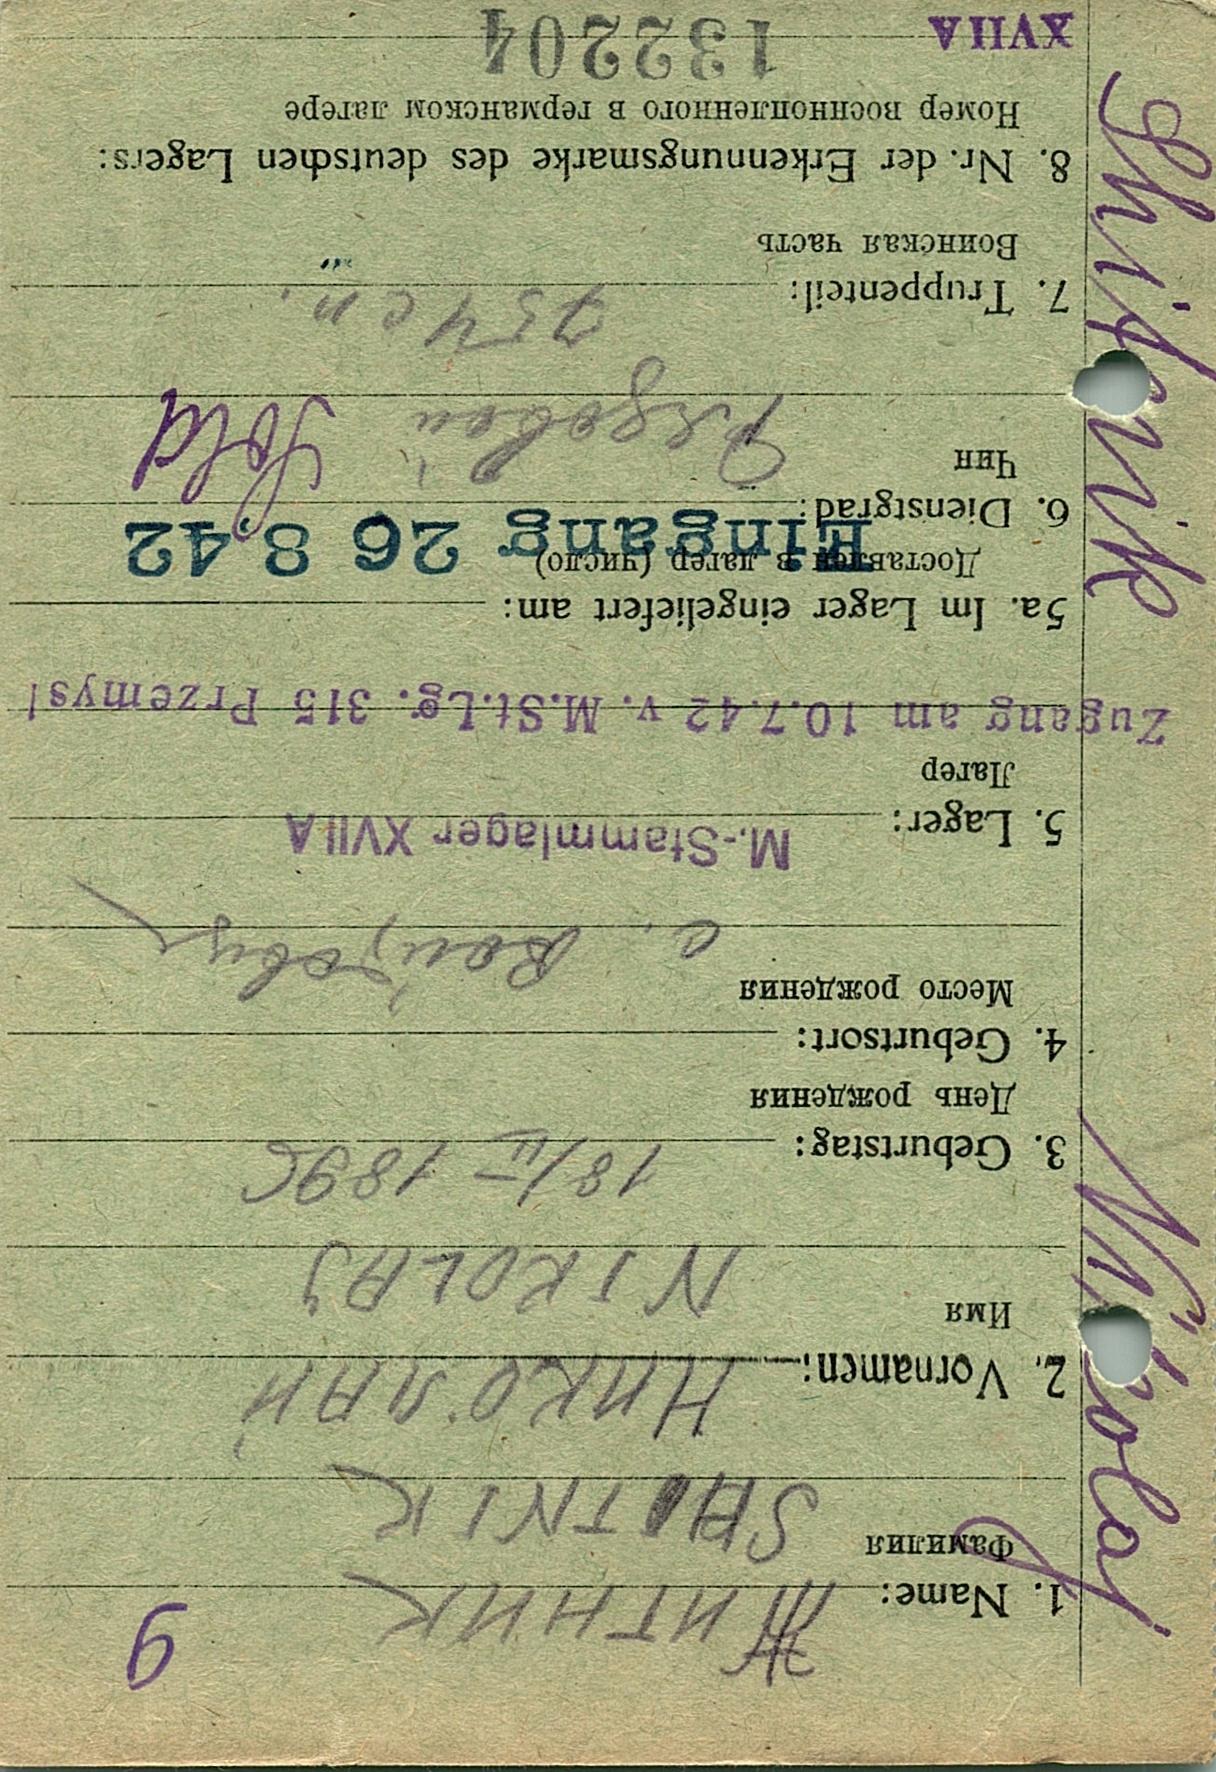 9
1. Name: Житник
Фамилия
SHITNIK
2. Vornamen: Николай
Имя
NIKOLAJ
3. Geburtstag: 18/II – 1896
День рождения
4. Geburtsort:
Место рождения
с.
5. Lager: M.-Stammlager XVIIA
Лагер
Zugang am 10.7.42 v. M.St.Lg. 315 Przemysl
5a. Im Lager eingeliefert am:
Доставлен в лагер (число)
Eingang 26 8.42
6. Dienstgrad:
Чин
Рядовой Sold
7. Truppenteil: 754 сп.
Воинская часть
8. Nr. der Erkennungsmarke des deutschen Lagers:
Номер военнопленного в германском лагере
XVIIA 132204
Shitnik Nikolaj